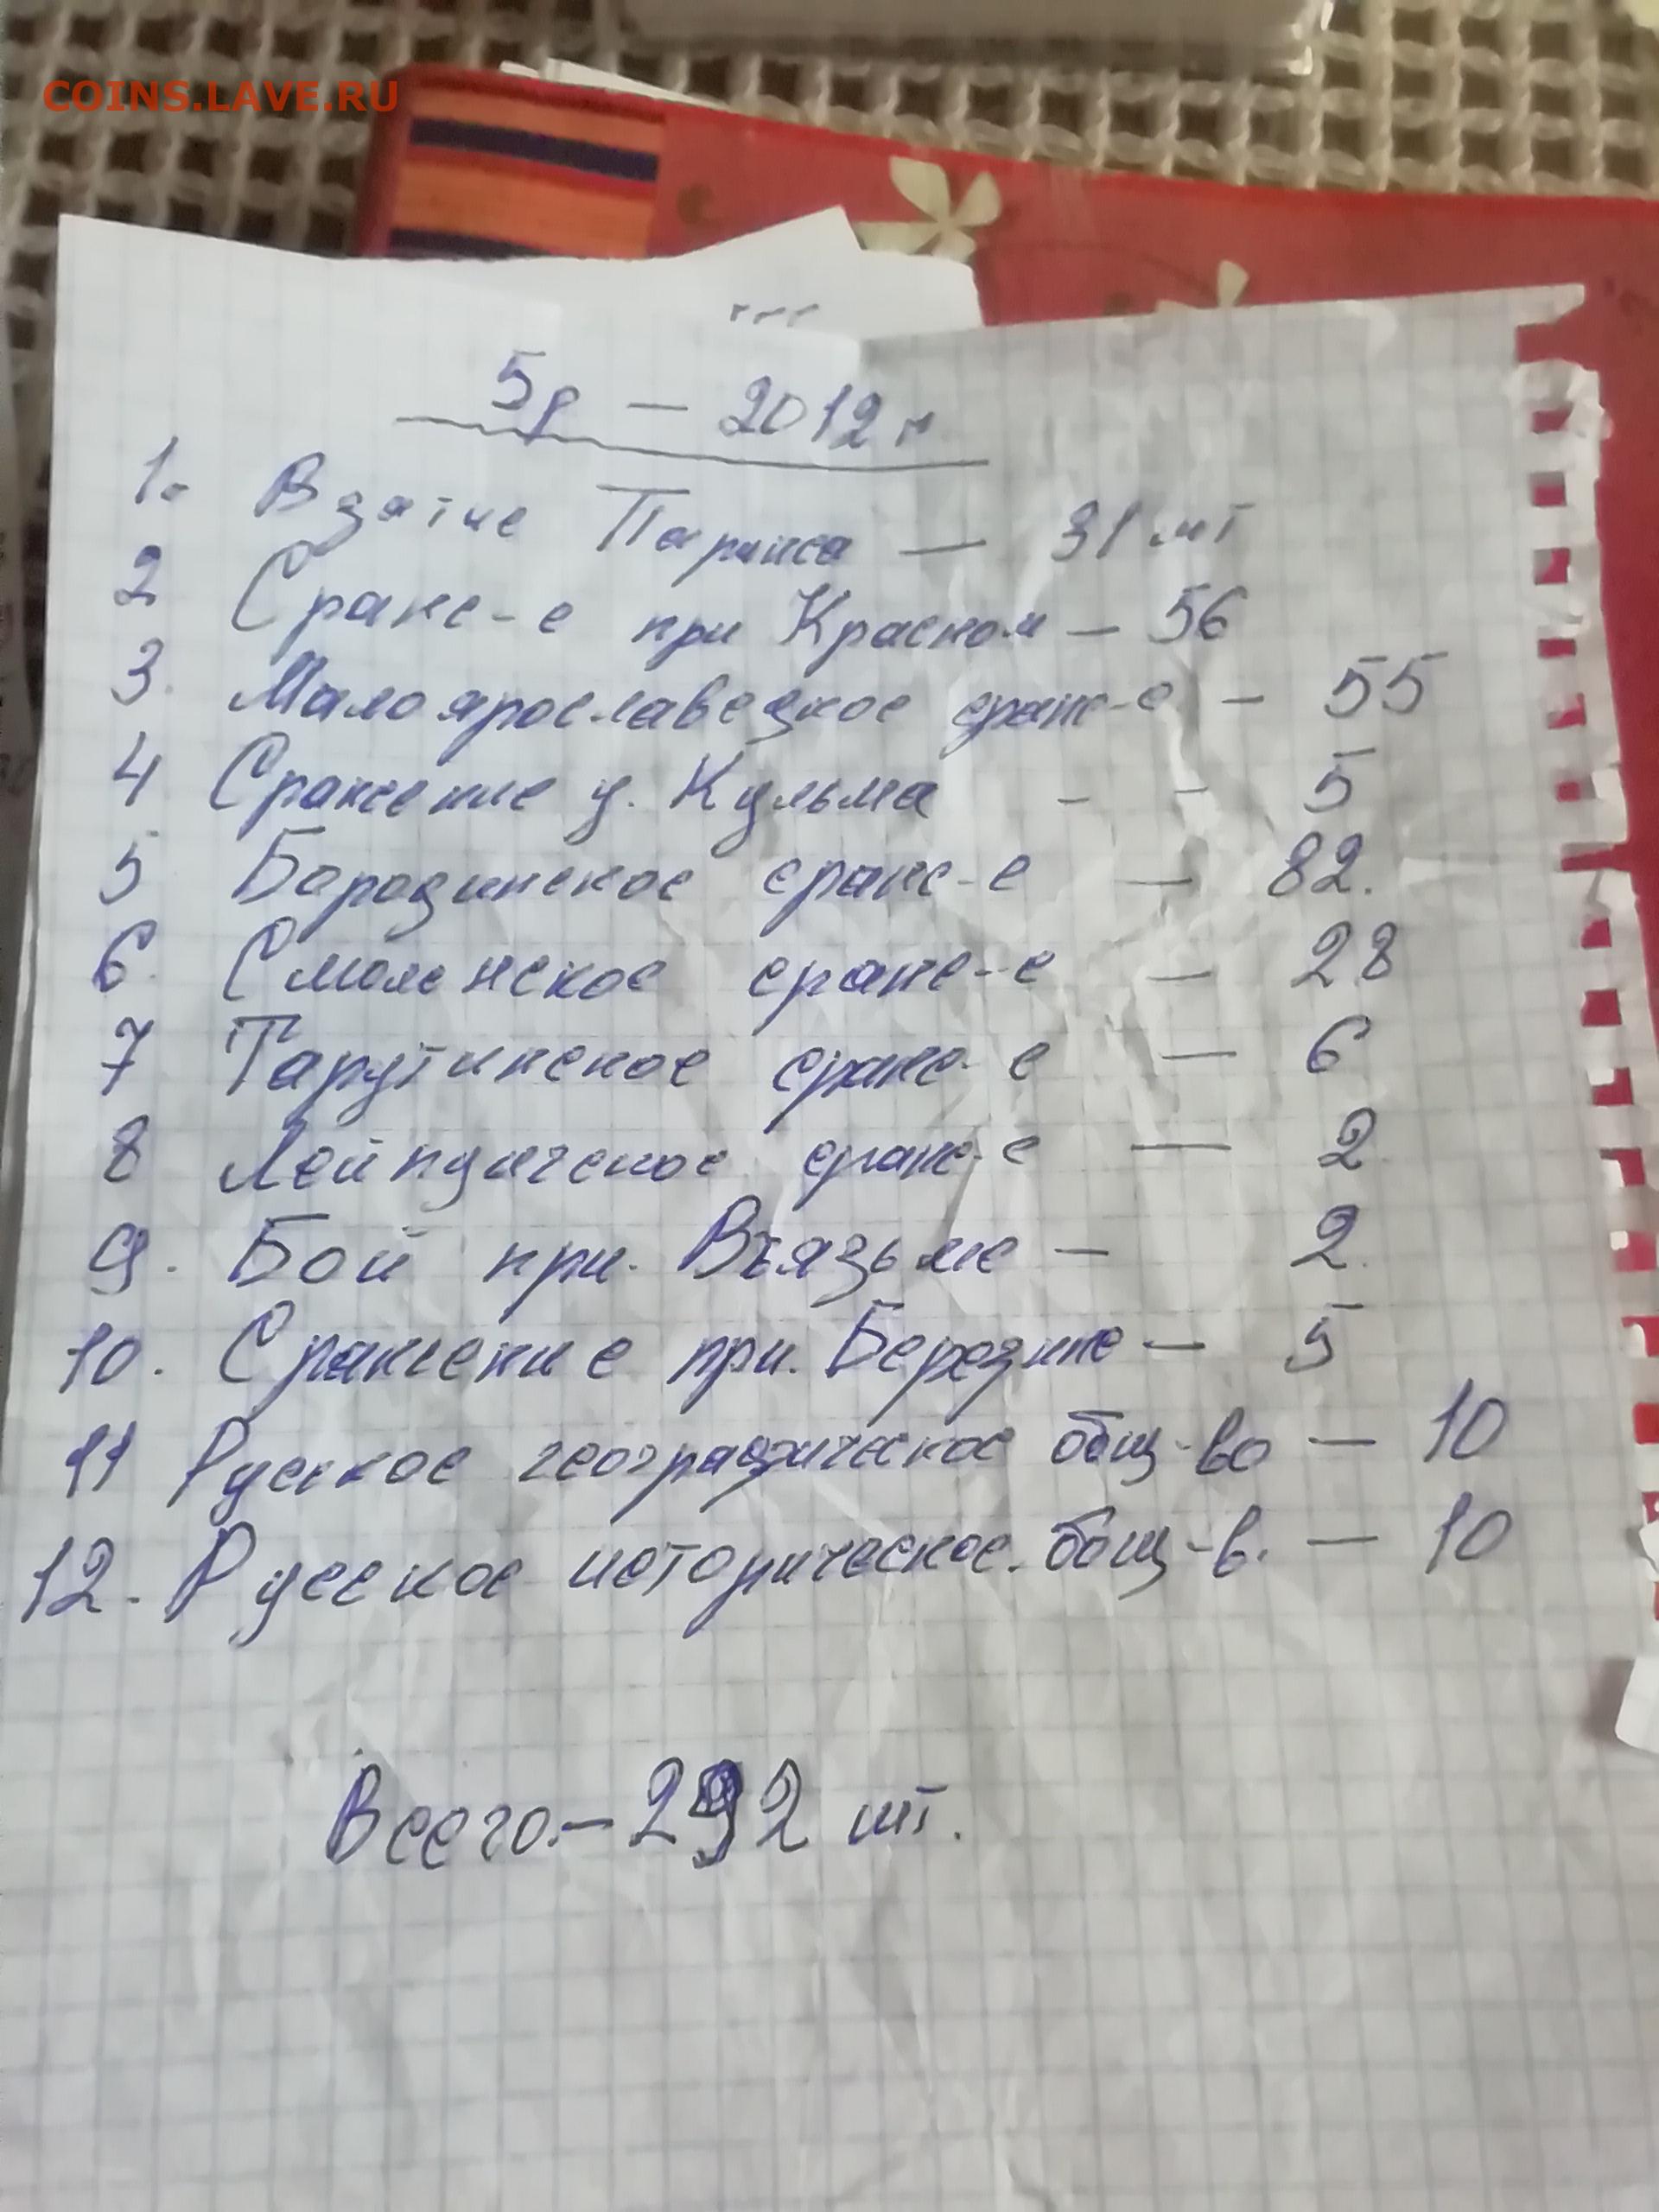 COINS.LAVE.RU
5р — 2012г
1. Взятие Парижа — 31 шт
2 Сраже-е при Красном — 56
3. Малоярославецкое сраж-е — 55
4 Сражение у. Кульма - - 5
5 Бородинское сраже-е — 82.
6. Смоленское сраже-е — 28
7 Тарутинское сраже-е — 6
8 Лейпцигское сраже-е — 2.
9. Бой при. Въязьме — 2.
10. Сражение при. Березине — 5
11 Русское географическое общ-во — 10
12. Руссское историческое. общ-в. — 10
Всего.— 292 шт.